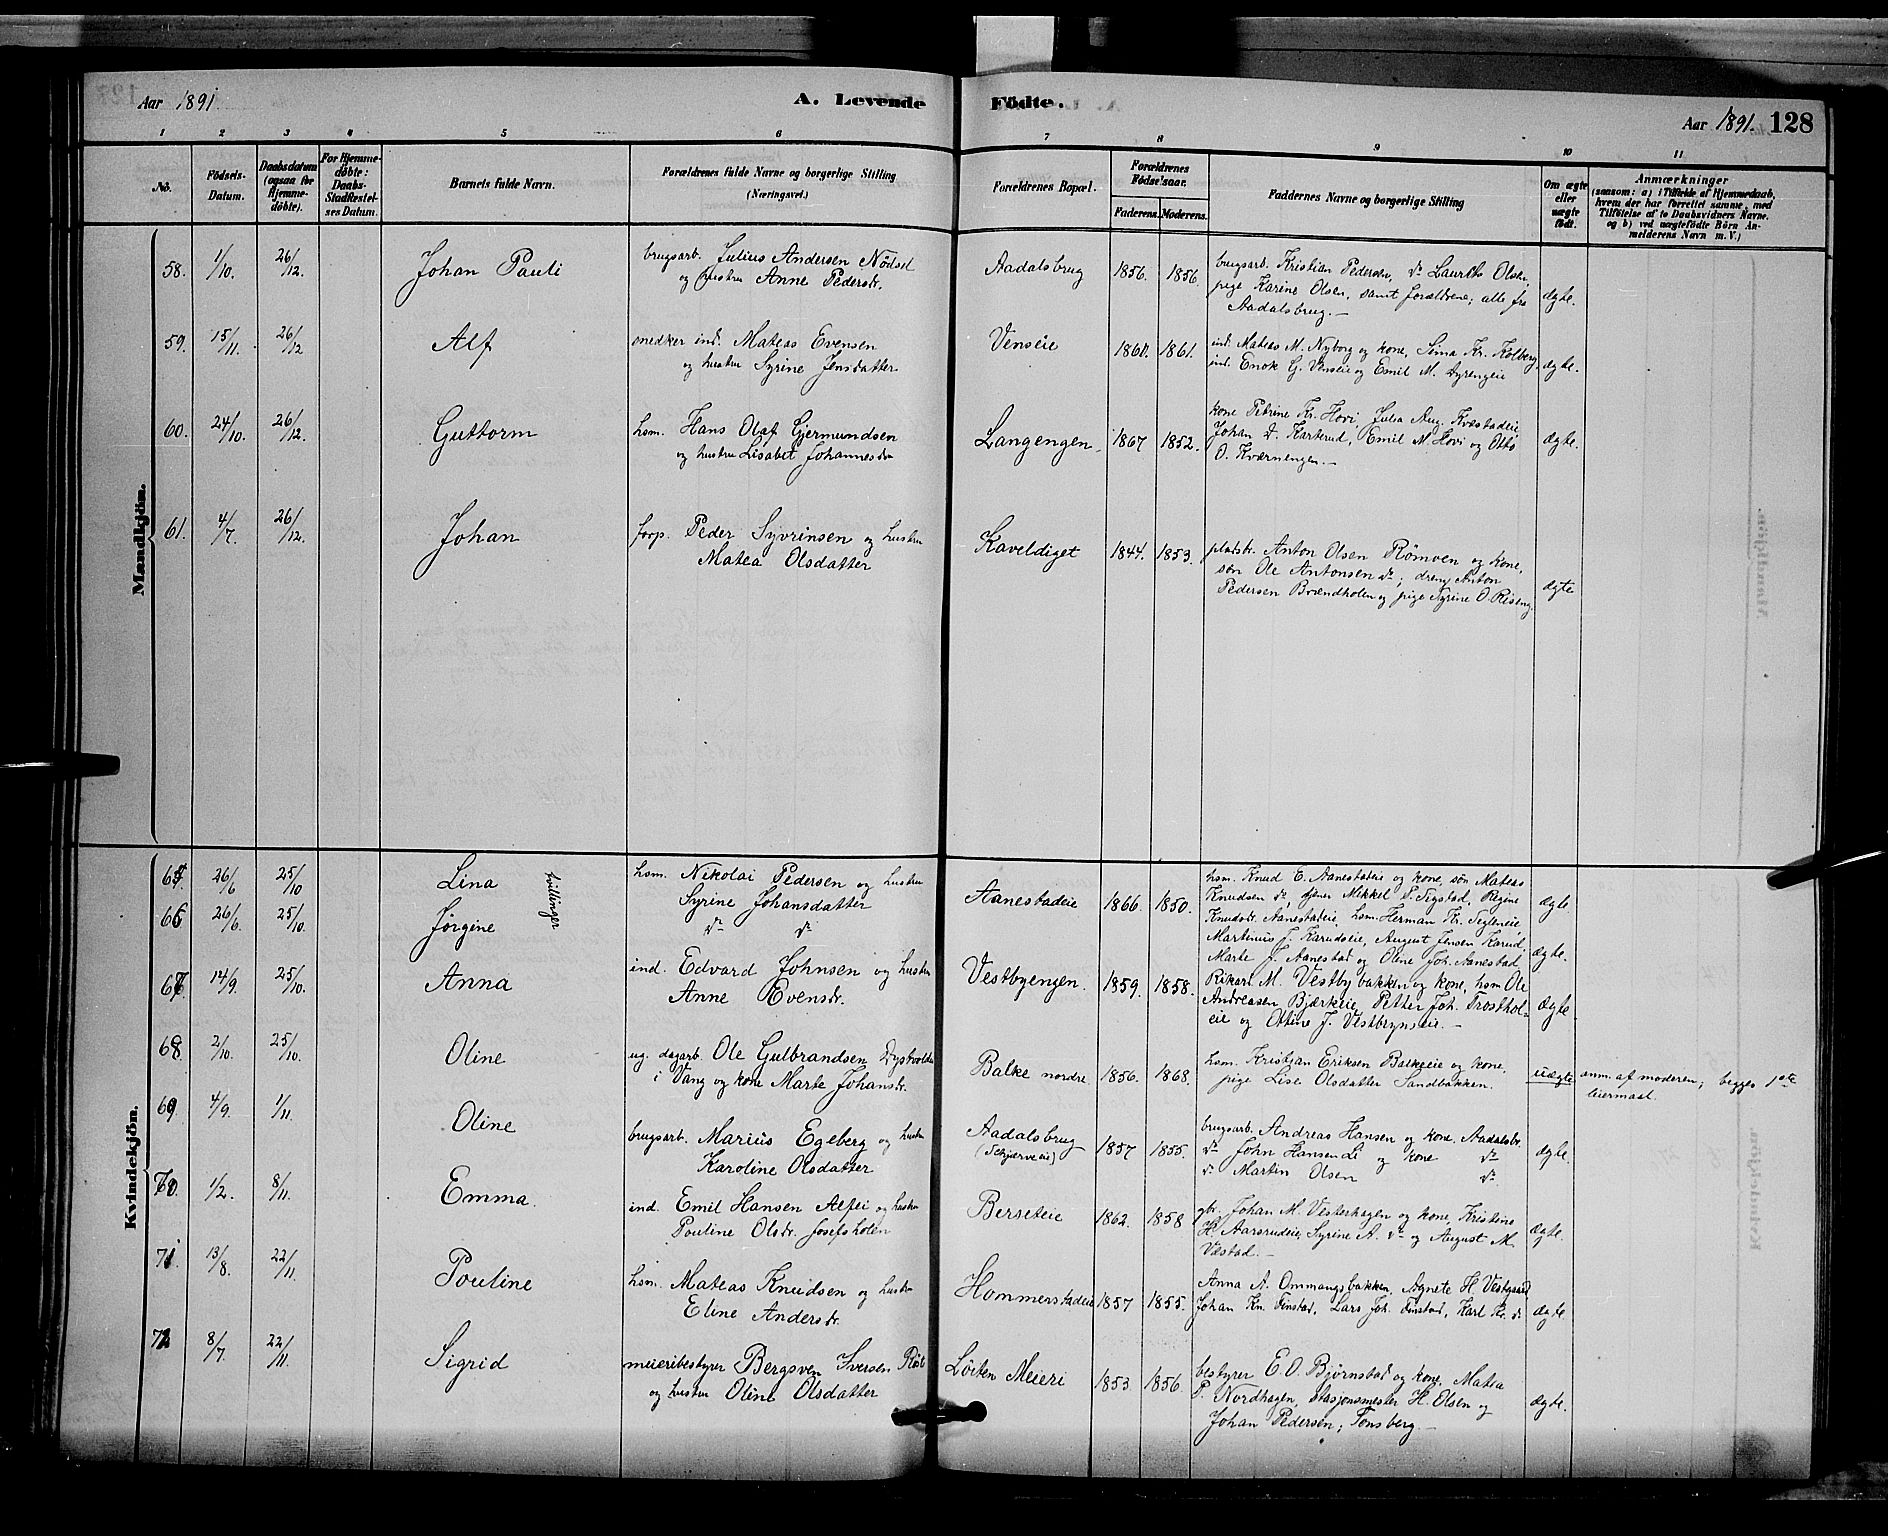 Aar 1891.
A. Levende Födte.
Aar 1891. 128
1 2 3 4 5 6 7 8 9 10 11
No.
Födsels-Datum.
Daabsdatum (ogsaa for Hjemmedöbte).
For Hjemmedöbte: Daabs-Stadfæstelses Datum.
Barnets fulde Navn.
Forældrenes fulde Navne og borgerlige Stilling (Næringsvei.)
Forældrenes Bopæl.
Forældrenes Fødselsaar.
Faderens. Moderens.
Faddernes Navne og borgerlige Stilling
Om ægte eller uægte født.
Anmærkninger
(saasom: a) i Tilfælde af Hjemmedaab, hvem der har forrettet samme, med Tilföielse af to Daabsvidners Navne. og b) ved uægtefödte Börn Anmelderens Navn m. V.)
Mandkjön.
58. 1/10. 26/12. Johan Pauli
brugsarb. Julius Andersen Nödset
og hustru Anne Pedersdr.
Aadalsbrug 1856. 1856.
brugsarb. Kristian Pedersen, do Laurits Olsen,
pige Karine Olsen, samt forældrene; alle fra
Aadalsbrug. —
ægte.
59. 15/11. 26/12 Alf
snedker ind. Mateas Evensen
og hustru Syrine Jensdatter
Venseie 1860. 1861.
ind. Mateas M. Nyborg og kone, Sina Kr. Kolberg,
ind. Enok G. Venseie og Emil M. Dyrengeie
ægte.
60. 24/10. 26/12. Guttorm
hsm. Hans Olaf Gjermundsen
og hustru Lisabet Johannesdr
Langengen 1867 1852.
kone Petrine Kr. Hovi, Julia Aug. Kvæstadeie,
Johan D. Karterud, Emil M. Hovi og Otto
O. Kværnengen. —
ægte.
61. 4/7. 26/12. Johan
forp. Peder Syvrinsen og hustru
Matea Olsdatter
Kaveldiget 1844. 1853.
pladsbr. Anton Olsen Rømven og kone,
søn Ole Antonsen do; dreng Anton
Pedersen Brændholen og pige Syrine O. Riseng.
ægte
Kvindekjön.
65. 26/6 25/10 Lina
hsm. Nikolai Pedersen og hustru
Syrine Johansdatter
tvillinger
Aanestadeie 1866. 1850.
hsm. Knud E. Aanestadeie og kone, søn Mateas
Knudsen do, Mikkel P. Sigstad, Regine
ægte
66 26/6. 25/10. Jørgine
do do
Knudsdr. Aanestadeie, hsm. Herman Kr. Segleneie,
Martinius J. Karudseie, August Jensen Karud,
Marte J. Aanestad og Oline Joh. Aanestad
ægte.
67. 14/9. 25/10. Anna
ind. Edvard Johnsen og hustru
Anne Evensdr.
Vestbyengen. 1859. 1858.
Rikard M. Vestbybakken og kone, hsm Ole
Andreasen Bjærkeie, Petter Joh. Trosthol-
eie og Ottine J. Vestbrynseie. —
ægte.
68. 2/10. 25/10. Oline
ug. dagarb. Ole Gulbrandsen Dystvold
i Vang og kone Marte Johansdr.
Balke nordre 1856. 1868.
hsm. Kristjan Eriksen Balkeeie og kone,
pige Lise Olsdatter Sandbakken.
uægte
anm. af moderen; begges 1ste
leiermaal.
69. 4/9. 1/11. Oline
brugsarb. Marius Egeberg og hustru
Karoline Olsdatter
Aadalsbrug
(Skjærveie)
1857 1855.
brugsarb. Andreas Hansen og kone, Aadalsbr.
do John Hansen Li og kone do
do Martin Olsen do
ægte.
70. 1/2. 8/11. Emma.
ind. Emil Hansen Alfei og hustru
Pouline Olsdr. Josefsholen
Berseteie 1862. 1858
gbr. Johan M. Vesterhagen og kone, Kristine
H. Aarsrudeie, Syrine A. do og August M.
Væstad. —
ægte.
71. 13/8. 22/11. Pouline
hsm. Mateas Knudsen og hustru
Eline Andersdr.
Hommerstadeie 1857 1855.
Anna A. Ommangsbakken, Agnete H. Vestgaard
Johan Kn. Finstad, Lars Joh. Finstad, Karl Kr. do
ægte.
72. 8/7. 22/11. Sigrid
meieribestyrer Bergsven Iversen
og hustru Oline Olsdatter
Löiten Meieri 1853. 1856.
bestyrer E. O. Bjørnstad og kone, Matea
P. Nordhagen, stasjonsmester H. Olsen og
Johan Pedersen, Tønsberg. —
ægte.